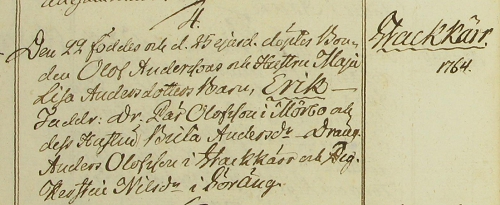 4.
Den 22 föddes och d. 25 ejusd. döptes Bon-
den Olof Anderssons och Hustru Maja
Lisa Andersdotters Barn, Erik —
Faddr: Dr. Pär Olofsson i Mörbo och
dess Hustru Brita Andersdr — Dräng
Anders Olofsson i Stackkärr och Pig.
Kerstin Nilsdr i
Stackkärr.
1764.